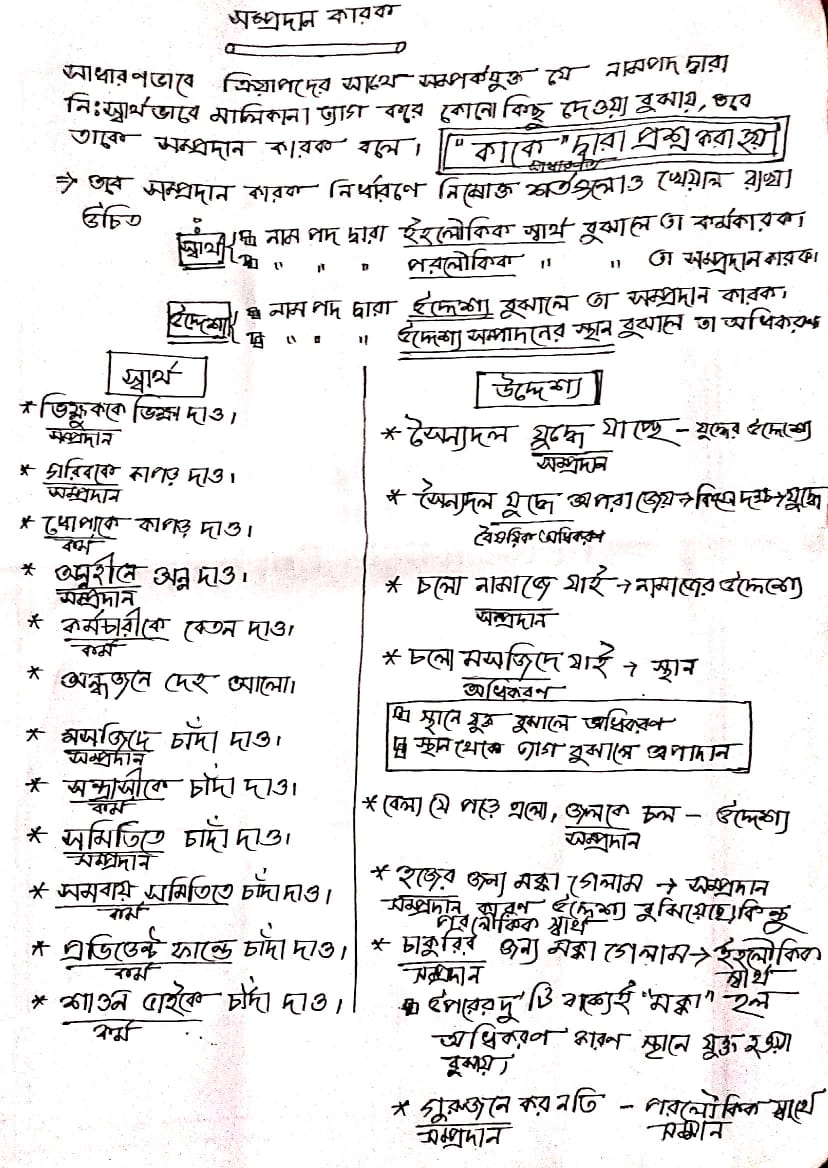 সম্প্রদান কারক
সাধারণভাবে ক্রিয়াপদের সাথে সম্পর্কযুক্ত যে নামপদ দ্বারা
নিঃস্বার্থভাবে মালিকানা ত্যাগ করে কোনো কিছু দেওয়া বুঝায়, তবে
তাকে সম্প্রদান কারক বলে। "কাকে" দ্বারা প্রশ্ন করা হয়
সাধারণত
⇒ তবে সম্প্রদান কারক নির্ধারণে নিম্নোক্ত শর্তগুলোও খেয়াল রাখা
উচিত
স্বার্থ নাম পদ দ্বারা ইহলৌকিক স্বার্থ বুঝালে তা কর্মকারক।
" " " পরলৌকিক " " তা সম্প্রদান কারক।
উদ্দেশ্য নাম পদ দ্বারা উদ্দেশ্য বুঝালে তা সম্প্রদান কারক।
" " " উদ্দেশ্য সম্পাদনের স্থান বুঝালে তা অধিকরণ
স্বার্থ
* ভিক্ষুককে ভিক্ষা দাও।
সম্প্রদান
* গরিবকে কাপড় দাও।
সম্প্রদান
* ধোপাকে কাপড় দাও।
কর্ম
* অন্নহীনে অন্ন দাও।
সম্প্রদান
* কর্মচারীকে বেতন দাও।
কর্ম
* অন্ধজনে দেহ আলো।
* মসজিদে চাঁদা দাও।
সম্প্রদান
* সন্ত্রাসীকে চাঁদা দাও।
কর্ম
* সমিতিতে চাঁদা দাও।
সম্প্রদান
* সমবায় সমিতিতে চাঁদা দাও।
কর্ম
* প্রভিডেন্ট ফান্ডে চাঁদা দাও।
কর্ম
* শাওন ভাইকে চাঁদা দাও।
কর্ম
উদ্দেশ্য
* সৈন্যদল যুদ্ধে যাচ্ছে - যুদ্ধের উদ্দেশ্যে
সম্প্রদান
* সৈন্যদল যুদ্ধে অপরাজেয় → বিষয়ে দক্ষ → যুদ্ধে
বৈষয়িক অধিকরণ
* চলো নামাজে যাই → নামাজের উদ্দেশ্যে
সম্প্রদান
* চলো মসজিদে যাই → স্থান
অধিকরণ
স্থানে যুক্ত বুঝালে অধিকরণ
স্থান থেকে ত্যাগ বুঝালে অপাদান
* বেলা যে পড়ে এলো, জলকে চল - উদ্দেশ্যে
সম্প্রদান
* হজের জন্য মক্কা গেলাম → সম্প্রদান
সম্প্রদান কারণ উদ্দেশ্য বুঝিয়েছে, কিন্তু
পরলৌকিক স্বার্থ
* চাকুরির জন্য মক্কা গেলাম → ইহলৌকিক
সম্প্রদান স্বার্থ
উপরের দু'টি বাক্যেই "মক্কা" হল
অধিকরণ কারণ স্থানে যুক্ত হওয়া
বুঝায়।
* গুরুজনে কর নতি - পরলৌকিক স্বার্থে
সম্প্রদান সম্মান